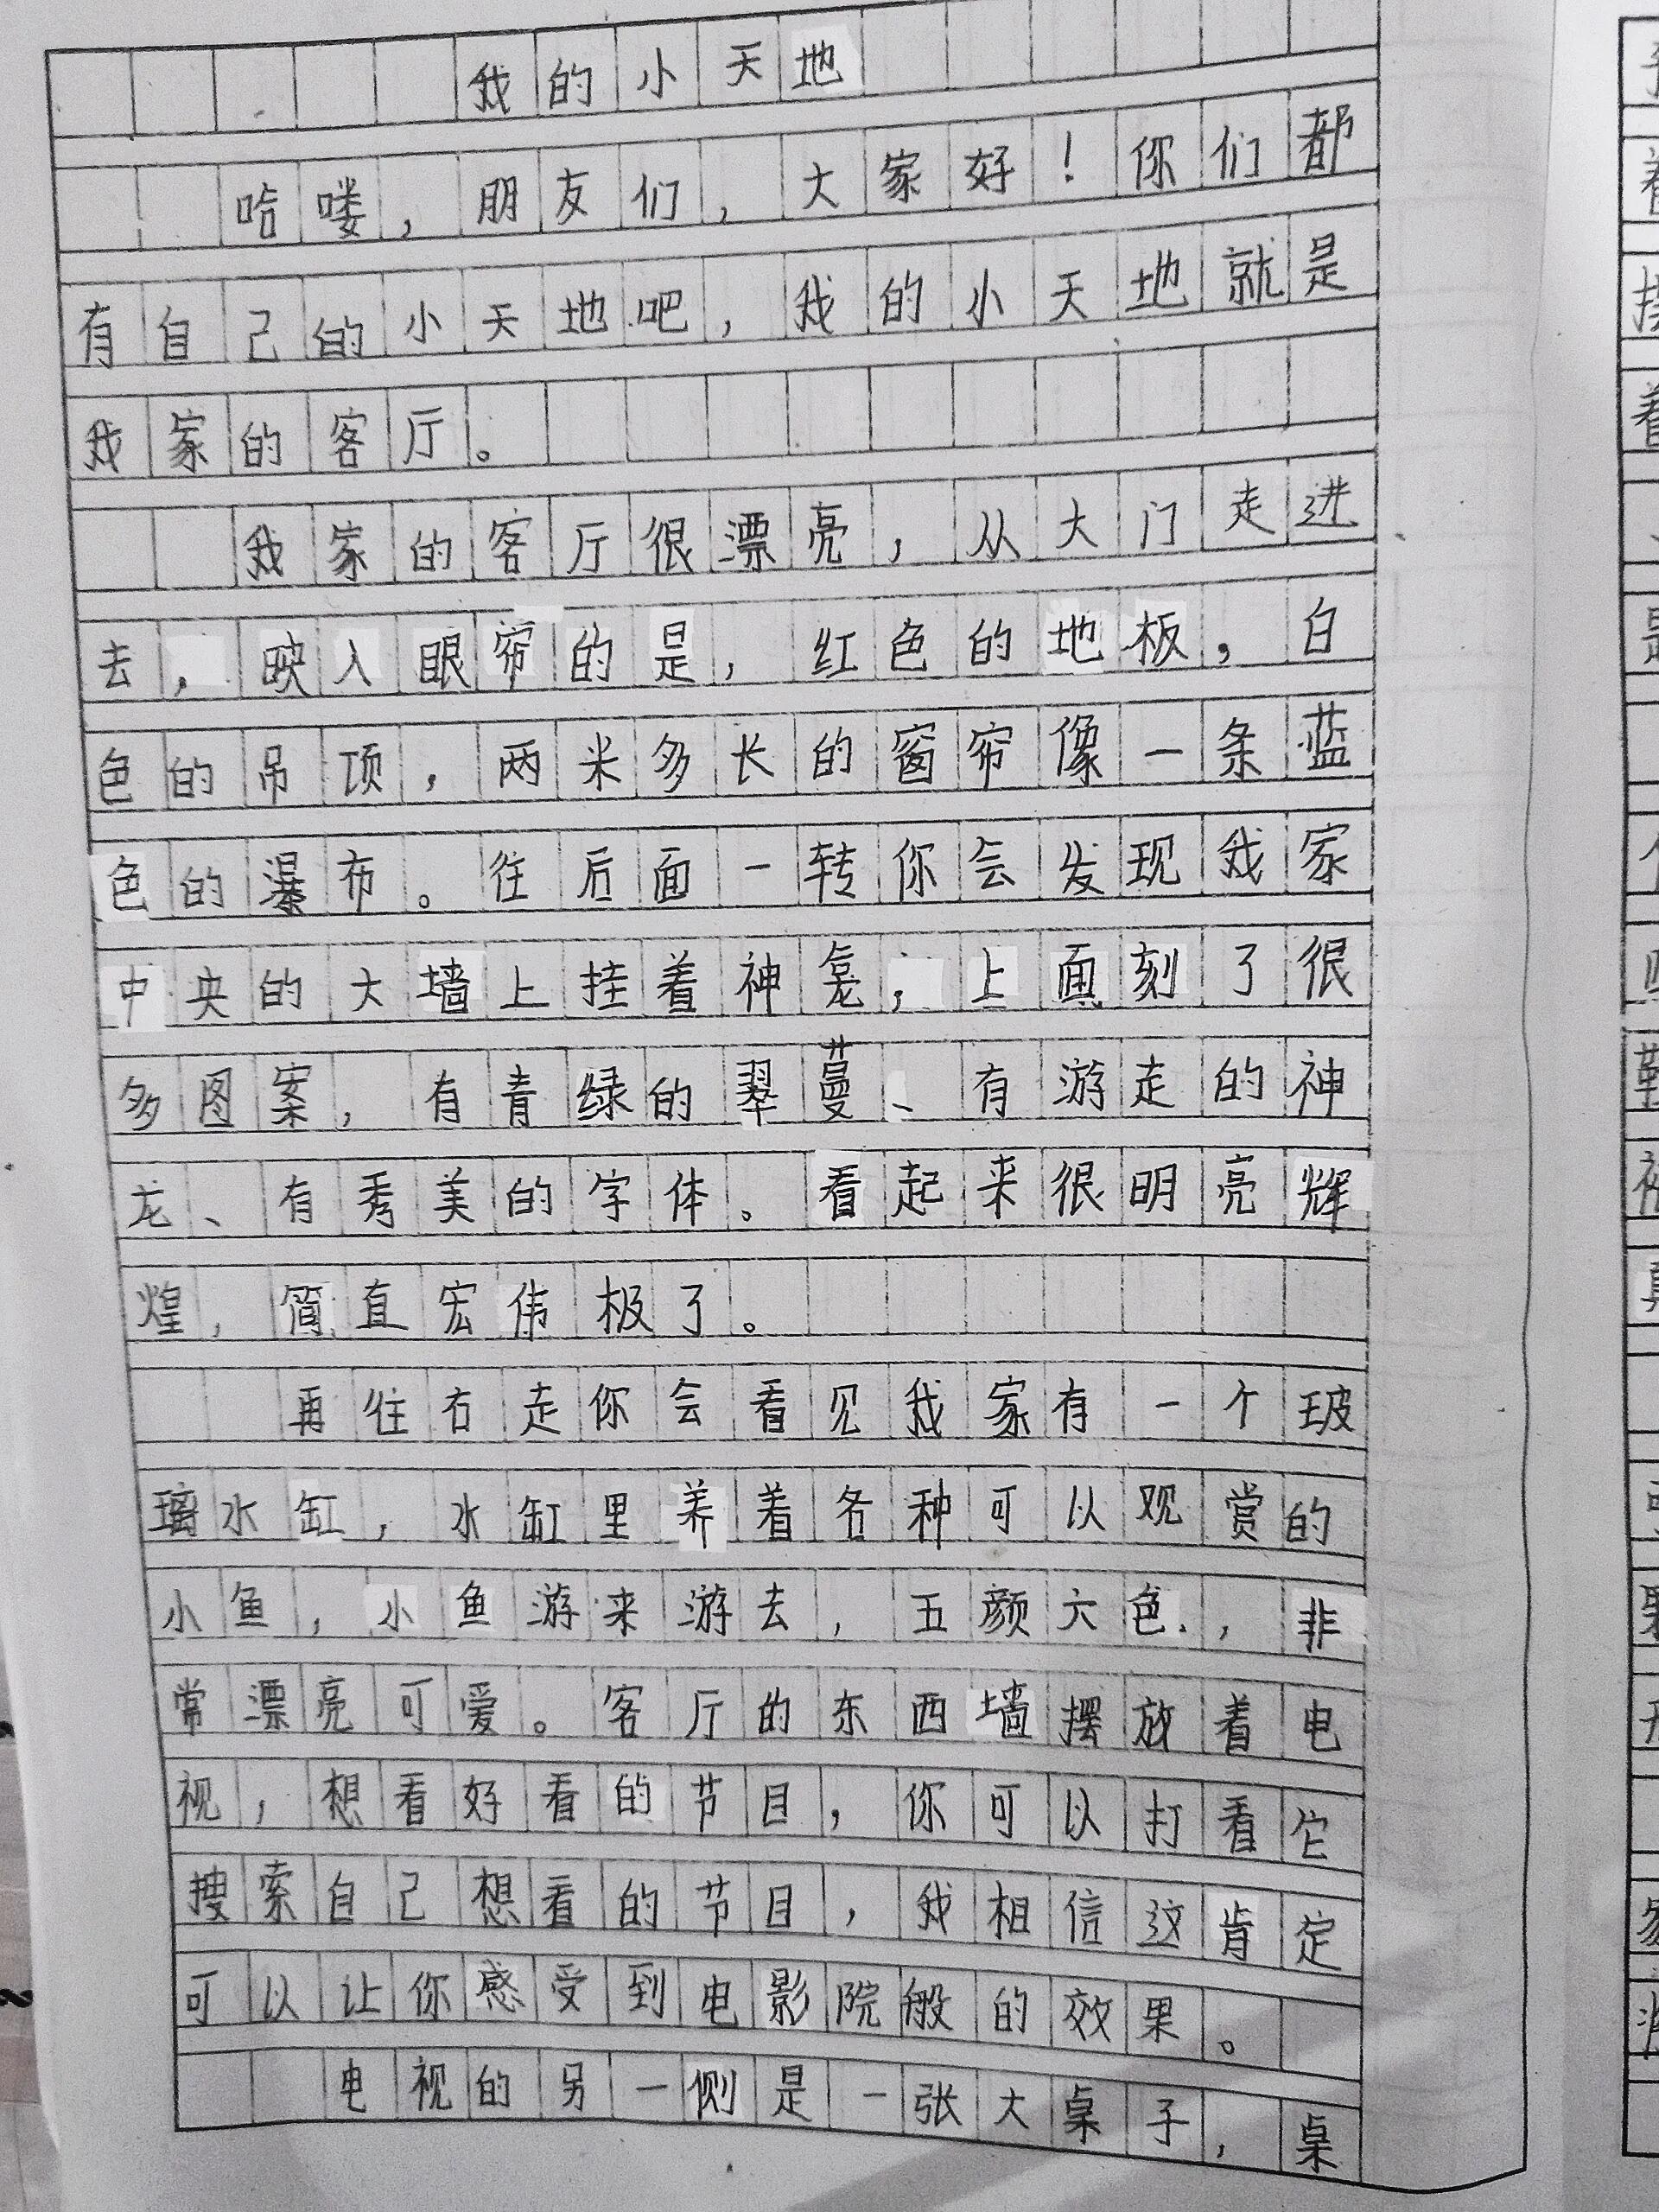 我的小天地
哈喽，朋友们，大家好！你们都
有自己的小天地吧，我的小天地就是
我家的客厅。
我家的客厅很漂亮，从大门走进
去，映入眼帘的是，红色的地板，白
色的吊顶，两米多长的窗帘像一条蓝
色的瀑布。往后面一转你会发现我家
中央的大墙上挂着神龛，上面刻了很
多图案，有青绿的翠蔓、有游走的神
龙、有秀美的字体。看起来很明亮辉
煌，简直宏伟极了。
再往右走你会看见我家有一个玻
璃水缸，水缸里养着各种可以观赏的
小鱼，小鱼游来游去，五颜六色，非
常漂亮可爱。客厅的东西墙摆放着电
视，想看好看的节目，你可以打看它
搜索自己想看的节目，我相信这肯定
可以让你感受到电影院般的效果。
电视的另一侧是一张大桌子，桌